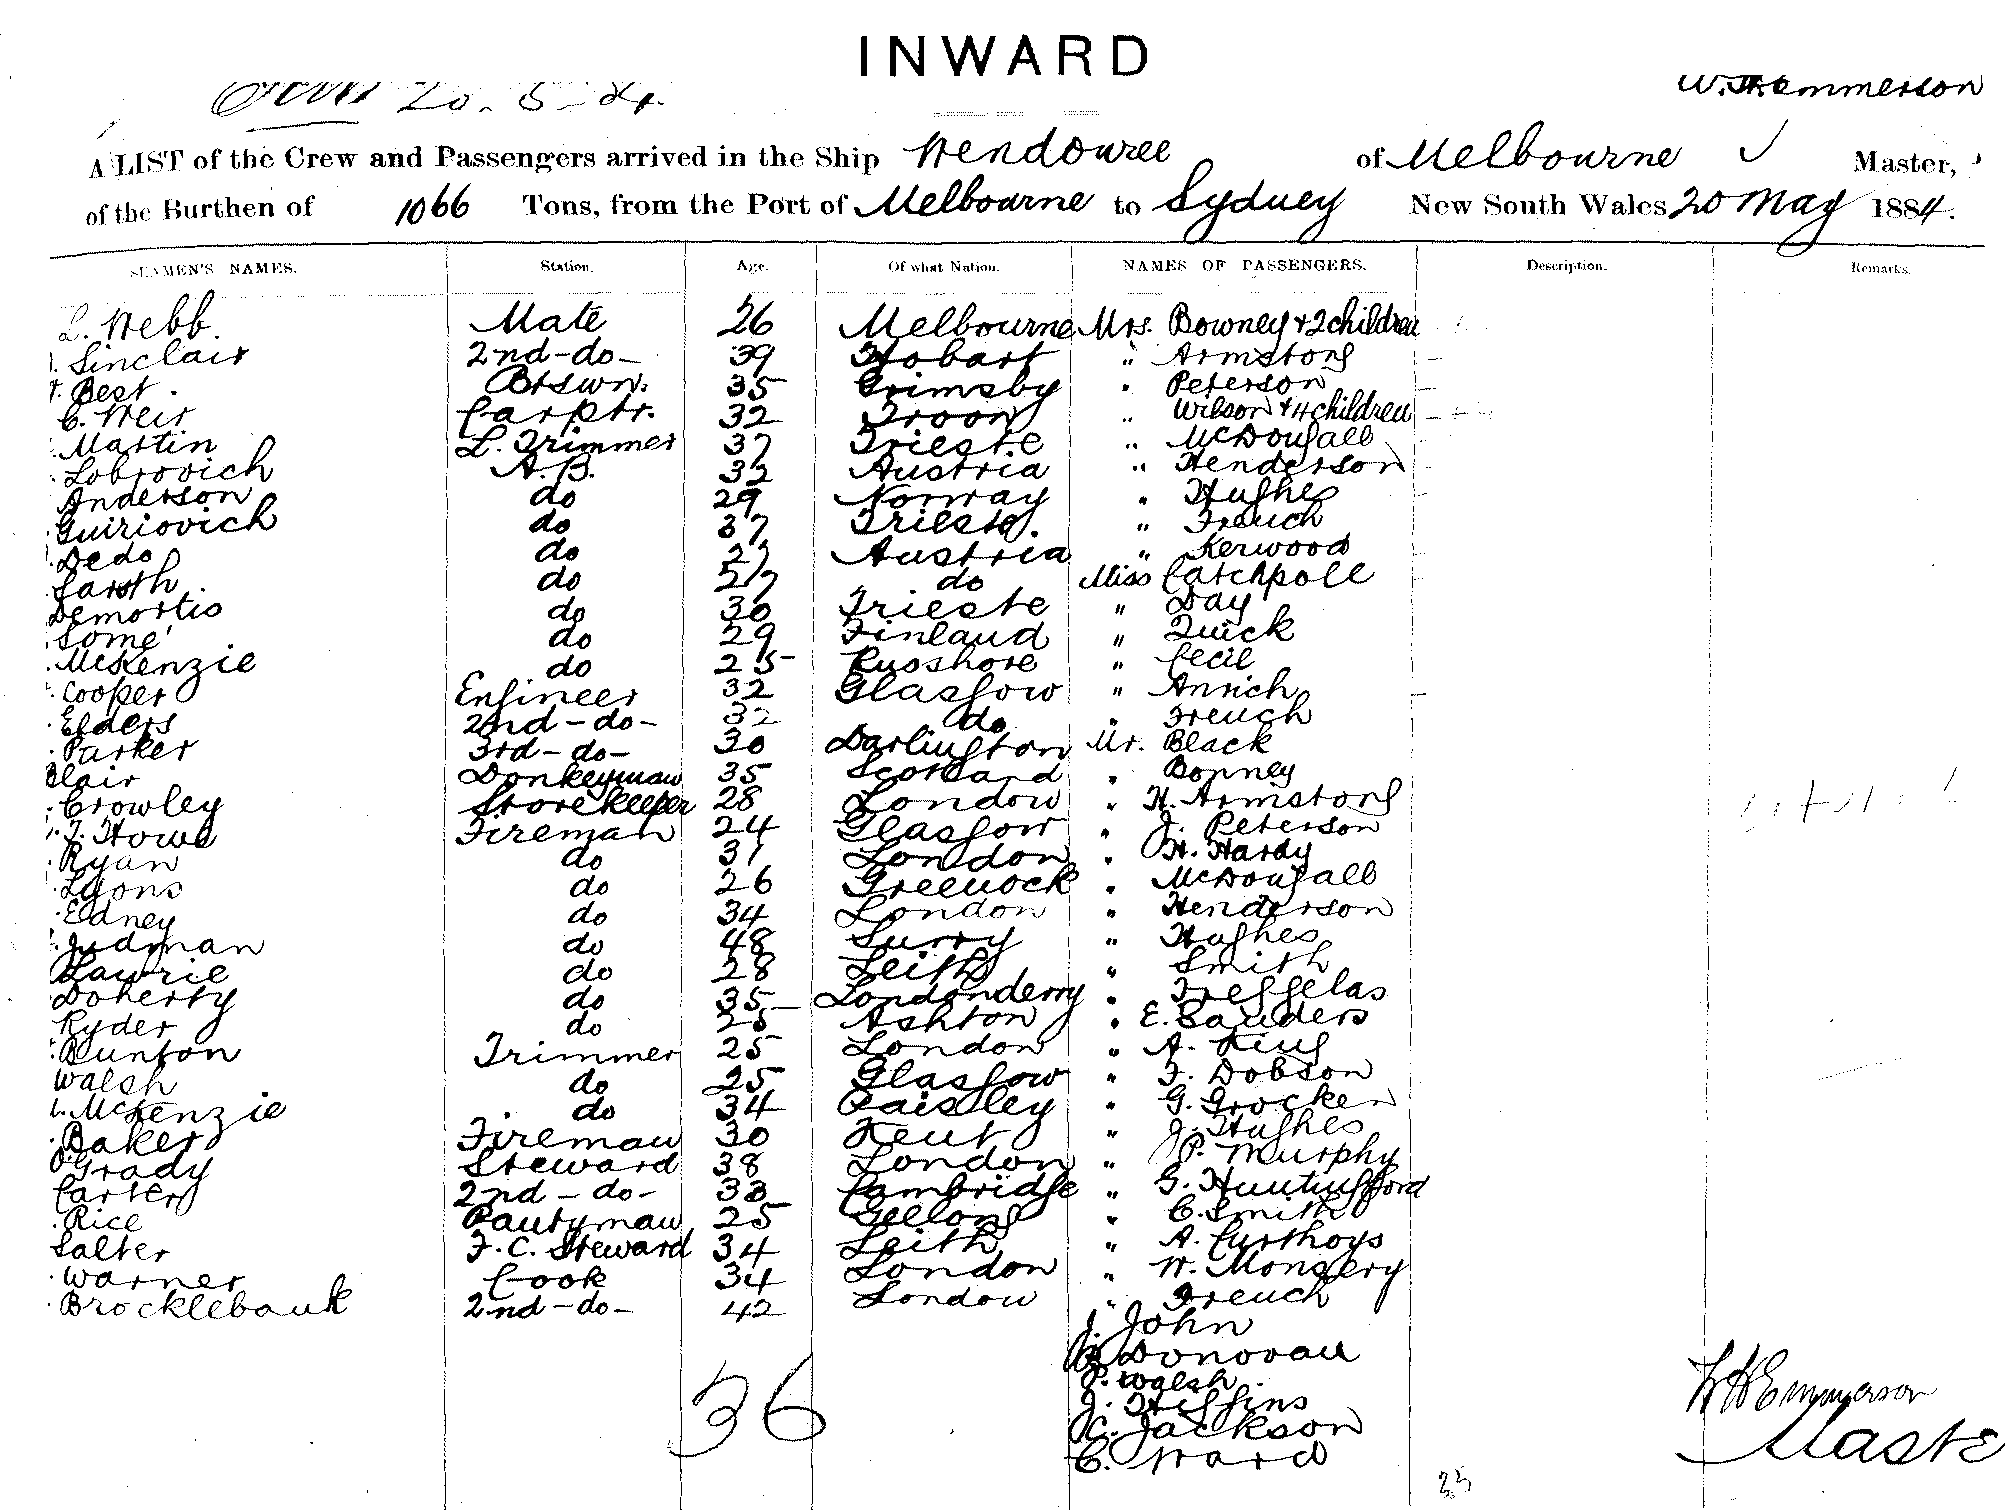 INWARD
20-5-84.
W. H. Emmerson
A LIST of the Crew and Passengers arrived in the Ship Wendouree of Melbourne Master,
of the Burthen of 1066 Tons, from the Port of Melbourne to Sydney New South Wales 20 May 1884.
SEAMEN'S NAMES. Station. Age. Of what Nation. NAMES OF PASSENGERS. Description. Remarks.
L. Webb. Mate 26 Melbourne Mrs. Bowney + 2 children
Sinclair 2nd-do- 39 Hobart " Armstong
Best. Btswn. 35 Grimsby " Peterson
C. Weir Carptr. 32 Troon " Wilson + 4 children
Martin L. Trimmer 37 Trieste " McDougall
Lobrovich A.B. 32 Austria " Henderson
Anderson do 29 Norway " Hughes
Guiriovich do 37 Trieste. " French
Dedo do 27 Austria " Kerwood
do 27 do Miss Catchpole
Demortis do 30 Trieste " Day
Some' do 29 Finland " Quick
McKenzie do 25 " Cecil
Cooper Engineer 32 Glasgow " Annich
Elders 2nd-do- 32 do " French
Parker 3rd-do- 30 Darlington Mr. Black
Blair Donkeyman 35 Scotland " Bonney
Crowley Storekeeper 28 London " H. Armstong
J. Howe Fireman 24 Glasgow " J. Peterson
Ryan do 31 London " H. Hardy
Lyons do 26 Greenock " McDougall
Edney do 34 London " Henderson
Judman do 48 Surry " Hughes
Lawrie do 28 Leith " Smith
Doherty do 35 Londonderry " Treggelas
Ryder do 25 Ashton " E. Sauders
Bunton Trimmer 25 London " A. King
Walsh do 25 Glasgow " F. Dobson
McKenzie do 34 Paisley " G. Grocker
Baker Fireman 30 Kent " J. Hughes
O'Grady Steward 38 London " P. Murphy
Carter 2nd-do- 33 Cambridge " G. Huntingford
Rice Pantyman 25 Gellong " C. Smith
Salter F.C. Steward 34 Leith " A. Curthoys
Warner Cook 34 London " W. Mongery
Brocklebank 2nd-do- 42 London " French
J. John
Donovan
P. Walsh
J. Higgins
C. Jackson
C. Ward
36
W H Emmerson
Maste